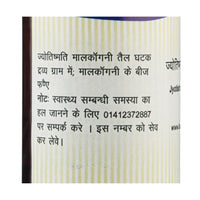 ज्योतिष्मति मालकॉगनी तैल घटक
द्रव्य ग्राम में; मालकॉगनी के बीज
फणि
नोट: स्वास्थ्य सम्बन्धी समस्या का
हल जानने के लिए 01412372887
पर सम्पर्क करे । इस नम्बर को सेव
कर लेवे।
ज्योतिष्म